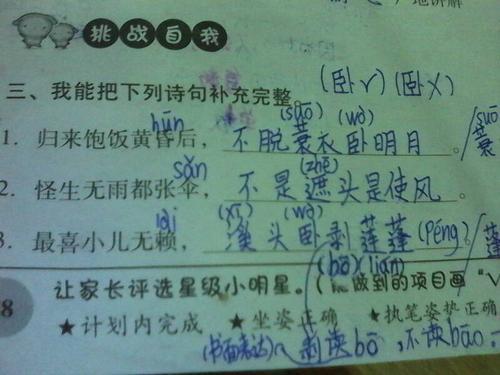 挑战自我
三、我能把下列诗句补充完整 (卧√)(卧×)
hūn (suō) (wò) suō
1. 归来饱饭黄昏后，不脱蓑衣卧明月。 蓑
sǎn (zhē)
2. 怪生无雨都张伞，不是遮头是使风。
lài (xī) (wò)
3. 最喜小儿无赖，溪头卧剥莲蓬(péng)。 蓬
(bō) lián
让家长评选星级小明星。(做到的项目画"√
8 ★计划内完成 ★坐姿正确 ★执笔姿势正确
(书面表达)剥读bō，不读bāo。